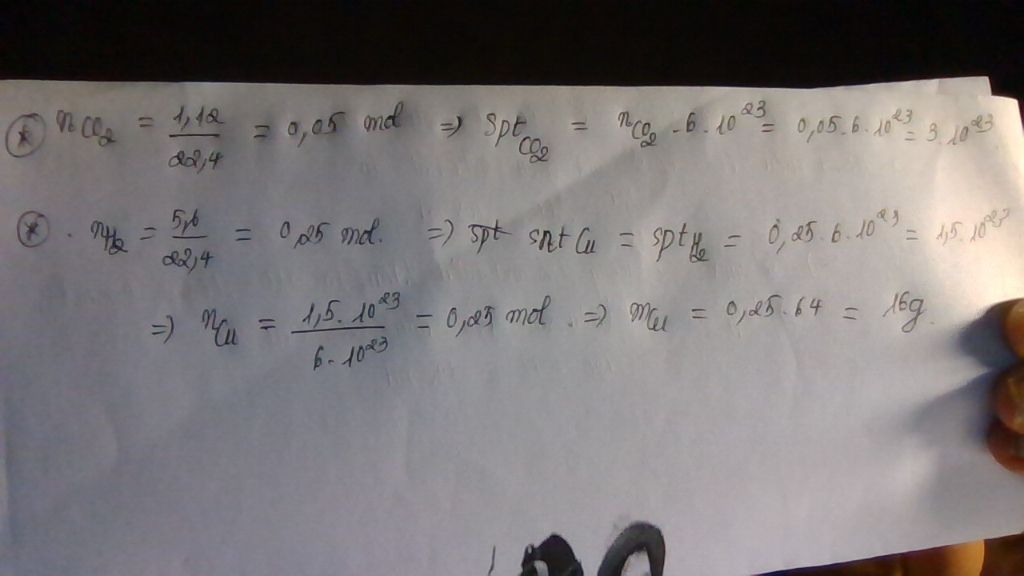 * nCO2 = 1,12/22,4 = 0,05 mol => SptCO2 = nCO2 . 6 . 10^23 = 0,05 . 6 . 10^23 = 3.10^23
* . nH2 = 5,6/22,4 = 0,25 mol. => spt snt Cu = sptH2 = 0,25 . 6 . 10^23 = 1,5 . 10^23
=> nCu = 1,5 . 10^23/6 . 10^23 = 0,25 mol . => mCu = 0,25 . 64 = 16g.